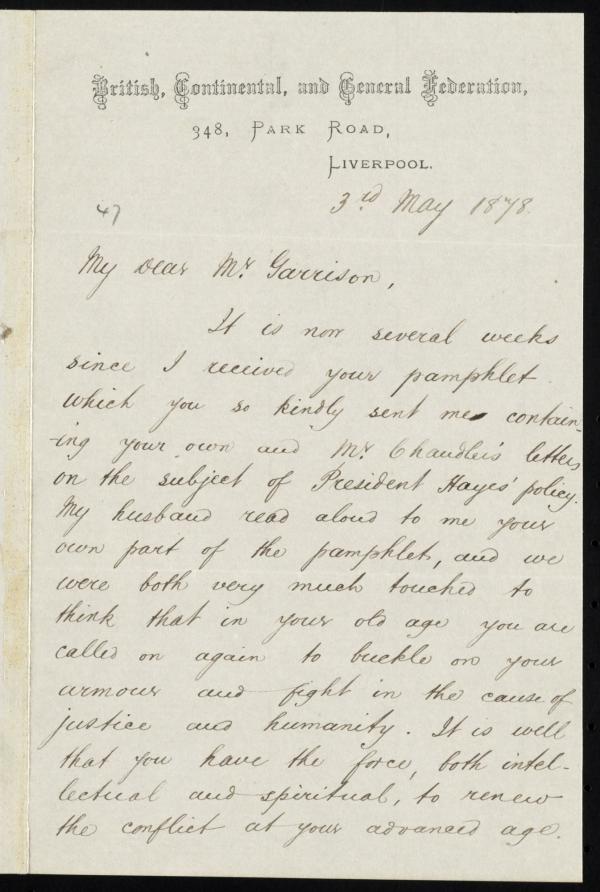 British, Continental, and General Federation,
348, Park Road,
Liverpool.
3rd May 1878.
47
My Dear Mr. Garrison,
It is now several weeks
since I received your pamphlet
which you so kindly sent me contain-
-ing your own and Mr. Chandler's letters
on the subject of President Hayes' policy.
My husband read aloud to me your
own part of the pamphlet, and we
were both very much touched to
think that in your old age you are
called on again to buckle on your
armour and fight in the cause of
justice and humanity. It is well
that you have the force, both intel-
lectual and spiritual, to renew
the conflict at your advanced age.